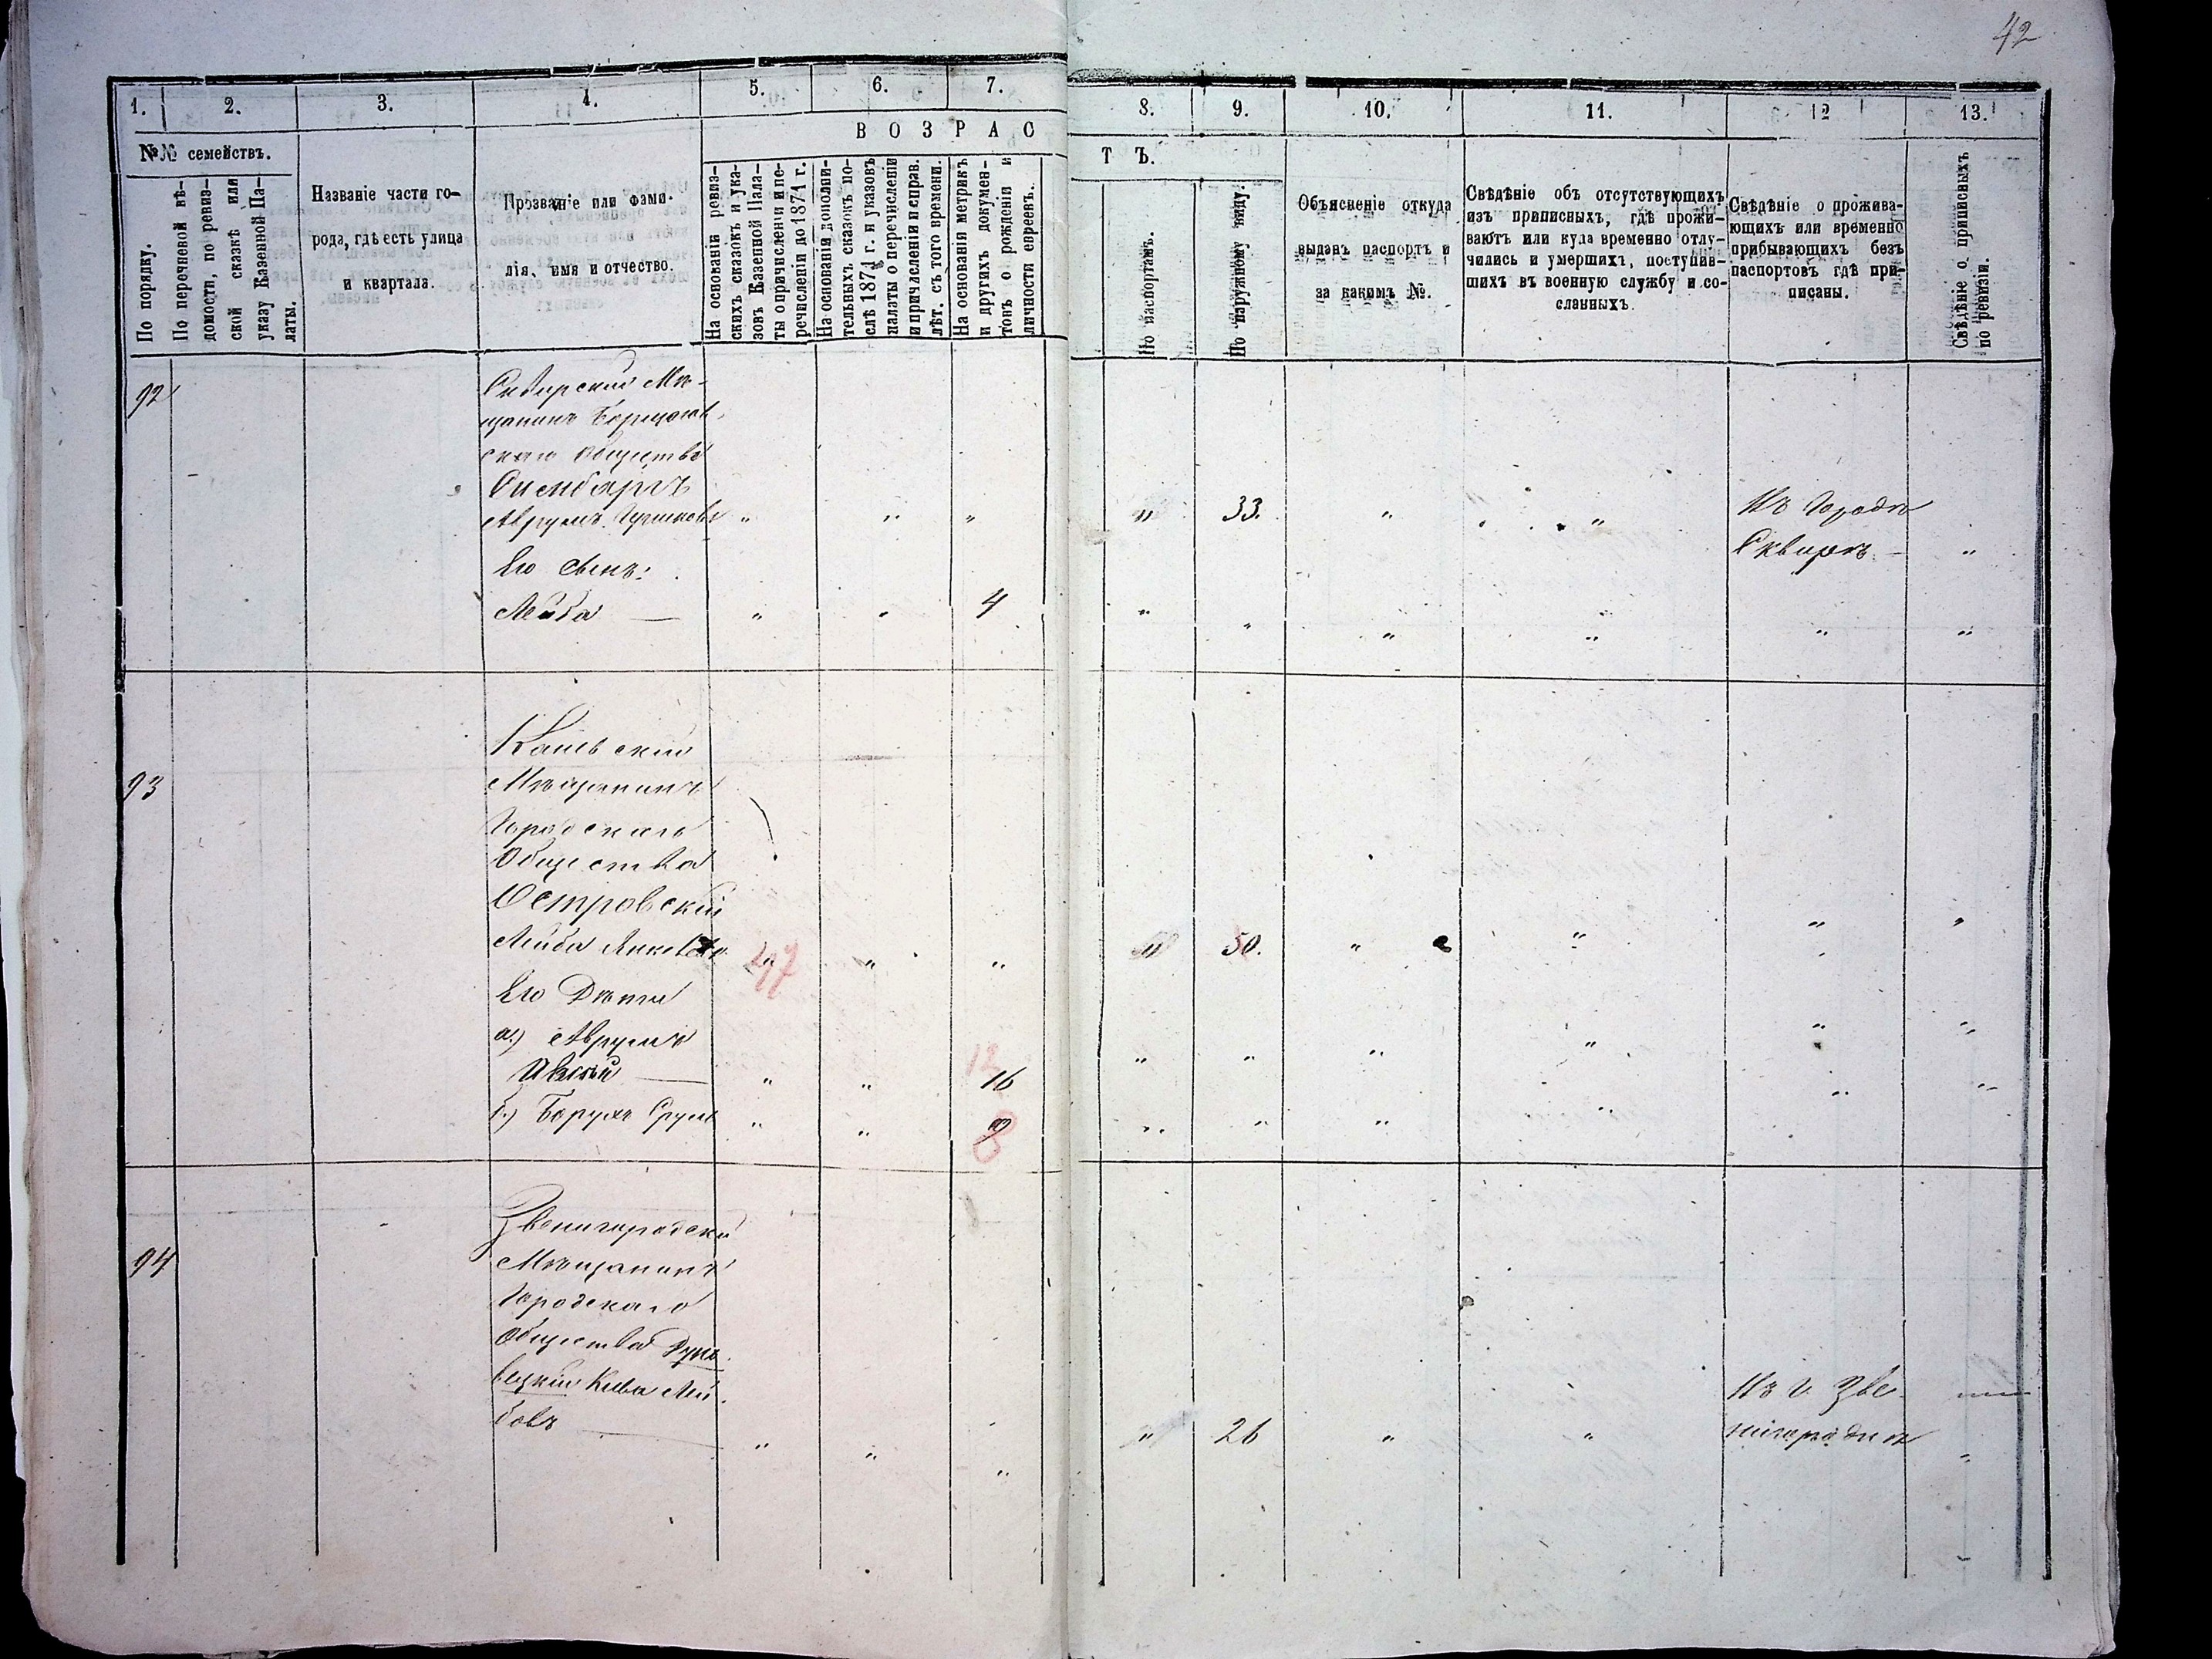 42
1.
2.
3.
4.
5.
6.
7.
8.
9.
10.
11.
12
13.
№№ семействъ.
В О З Р А С
Т Ъ.
По порядку.
По перечневой вѣ-
домости, по ревиз-
ской сказкѣ или
указу Казенной Па-
латы.
Названіе части го-
рода, гдѣ есть улица
и квартала.
Прозваніе или фами-
лія, имя и отчество.
На основаніи ревиз-
скихъ сказокъ и ука-
зовъ Казенной Пала-
ты о причисленіи и пе-
речисленіи до 1874 г.
На основаніи дополни-
тельныхъ сказокъ по-
слѣ 1874 г. и указовъ
палаты о перечисленіи
и причисленіи и справ.
лѣт. съ того времени.
На основаніи метрикъ
и другихъ докумен-
товъ о рожденіи и
личности евреевъ.
По паспортамъ.
По наружному виду.
Объясненіе откуда
выданъ паспортъ и
за какимъ №.
Свѣдѣніе объ отсутствующихъ
изъ приписныхъ, гдѣ прожи-
ваютъ или куда временно отлу-
чились и умершихъ, поступив-
шихъ въ военную службу и со-
сланныхъ.
Свѣдѣніе о прожива-
ющихъ или временно
прибывающихъ безъ
паспортовъ гдѣ при-
писаны.
Свѣдѣніе о приписныхъ
по ревизіи.
92
Мѣ-
щанинъ
скаго Общества
Аврумъ " " " " 33. " "
Въ Городѣ
Сквирѣ - "
Его Сынъ:
Лейба — " " 4 " " " " " "
93
Каневскій
Мѣщанинъ
Городскаго
Общества
Островскій
Лейба 297 " " " " 50. " " " "
Его Дѣти
а.) Аврумъ
— " " 12 16 " " " " " "
б.) Борухъ Срулъ " " 8 " " " " " "
94
Звенигородскій
Мѣщанинъ
Городскаго
Общества
вецкій Кива Лей-
бовъ " " " " 26 " "
Въ г. Зве-
нигородкѣ "